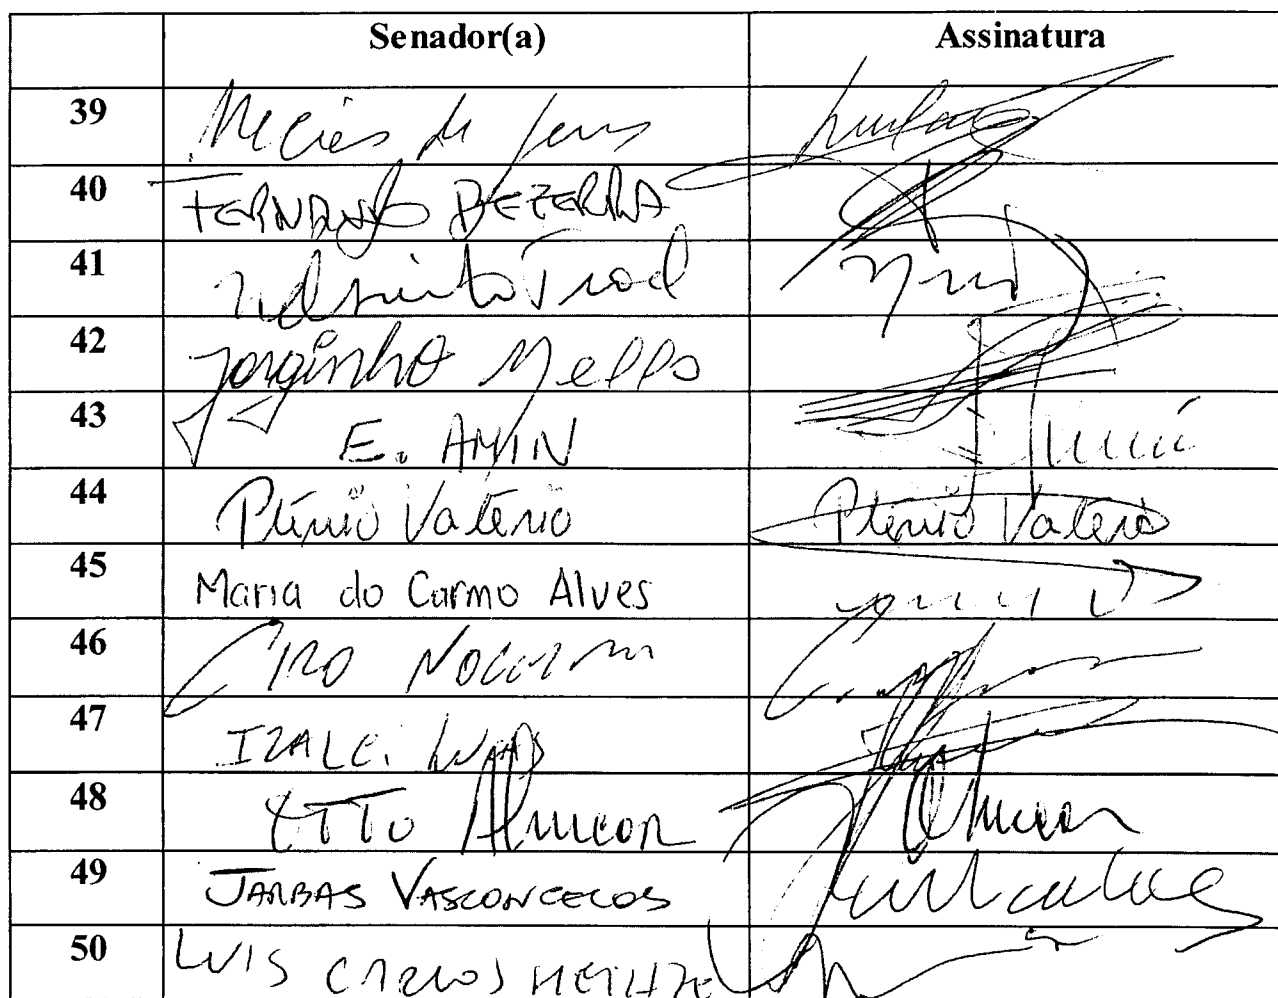 Senador(a) Assinatura
39 Mecias de Jesus
40 FERNANDO BEZERRA
41 Nelsinho Trad
42 Jorginho Mello
43 E. AMIN
44 Plínio Valério Plínio Valério
45 Maria do Carmo Alves
46 CIRO NOGUEIRA
47 IZALCI LUCAS
48 OTTO Alencar Alencar
49 JARBAS VASCONCELOS
50 LUIS CARLOS HEINZE